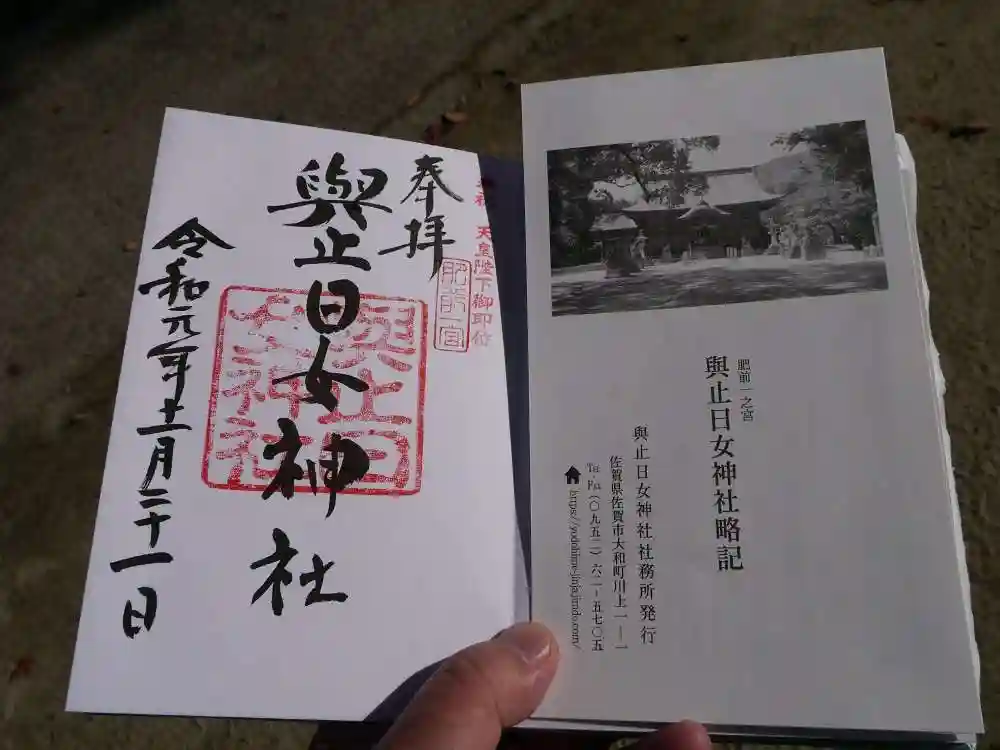 祝 天皇陛下御即位
奉拝
肥前一宮
與止日女神社
與止日女神社
令和元年十一月二十一日
肥前一之宮
與止日女神社略記
與止日女神社社務所発行
佐賀県佐賀市大和町川上一―一
Tel・Fax(〇九五二)六二-五七〇五
https://yodohime-jinja.jimdo.com/